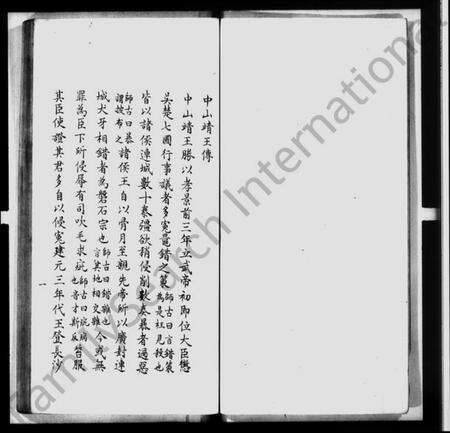 中山靖王傳
中山靖王勝以孝景前三年立武帝初即位大臣懲
吳楚七國行事議者多冤鼂錯之策師古曰言錯策為是枉見殺也
皆以諸侯連城數十泰彊欲稍侵削數奏暴過惡
師古曰暴謂披布之諸侯王自以骨月至親先帝所以廣封連
城犬牙相錯者為磐石宗也師古曰錯雜也言其地相交雜今或無
罪為臣下所侵辱有司吹毛求疵師古曰疵病也音才斯反笞服
其臣使證其君多自以侵冤建元三年代王登長沙
一
FamilySearch International